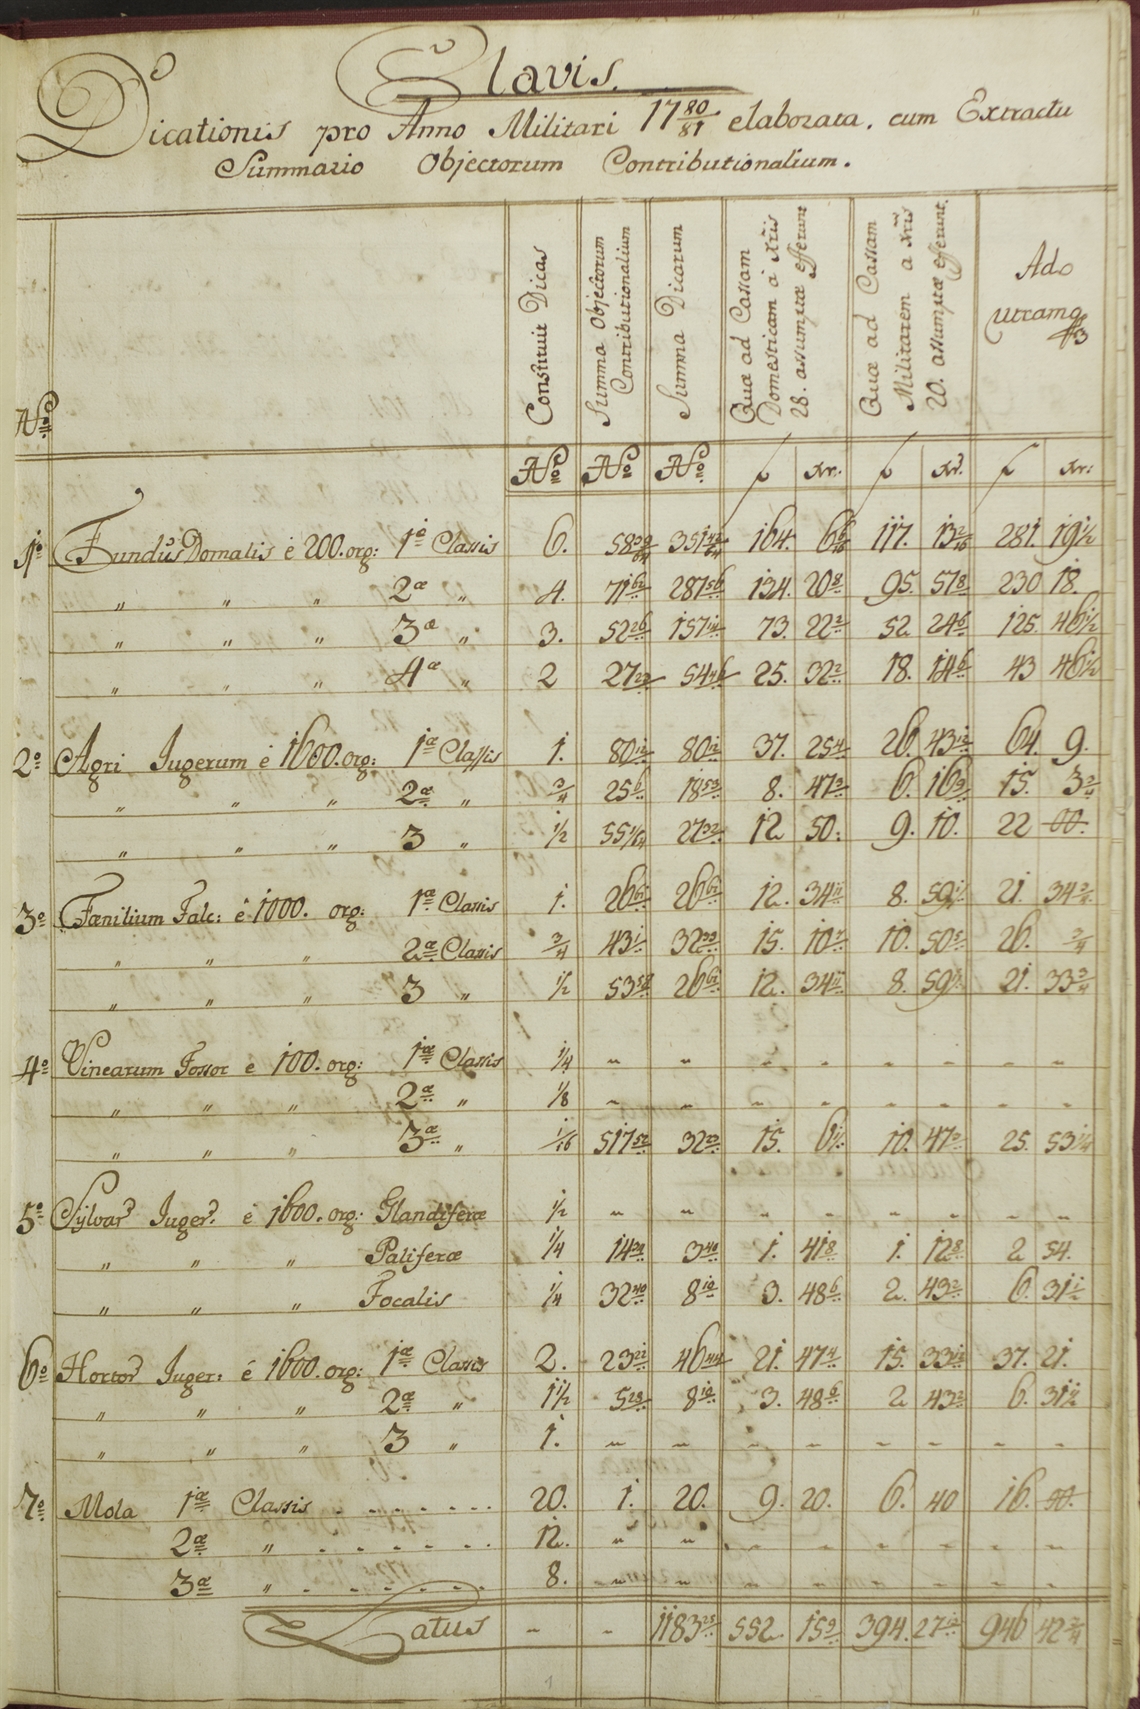 Clavis.
Dicationis pro Anno Militari 17 80/81 elaborata, cum Extractu
Summario Objectorum Contributionalium.
No
Constituit Dicas
Summa Objectorum Contributionalium
Summa Dicarum
Quæ ad Cassam Domesticam à Xris 28. assumptæ efferunt
Quæ ad Cassam Militarem a Xris 20. assumptæ efferunt.
Ad Utramq3
No No No f xr: f xr. f xr:
1o Fundus Domalis é 200. org: 1a Classis 6. 58 351 164. 6 117. 13 281. 19 1/2
" " " 2æ " 4. 71 287 56 134. 20 8 95. 57 8 230 18.
" " " 3æ " 3. 52 26 157 14 73. 22 2 52 24 6 125. 46 1/2
" " " 4æ " 2 27 54 46 25. 32 2 18. 14 6 43 46 1/2
2o Agri Jugerum é 1600. org: 1æ Classis 1. 80 12 80 12 37. 25 4 26. 43 12 64. 9.
" " " 2æ " 3/4 25 6 18 53 8. 47 6. 16 15. 3
" " " 3 " 1/2 55 1/64 27 32 12 50. 9. 10. 22 00.
3o Fænilium Falc: é 1000. org: 1æ Classis 1. 26 26 12. 34 8. 59 21. 34
" " " 2æ Classis 3/4 43 1 32 15. 10 10. 50 26. 3/4
" " " 3 " 1/2 53 26 12. 34 8. 59 21. 33
4o Vinearum Fossor é 100. org: 1æ Classis 1/4 - - - - - - - -
" " " 2æ " 1/8 - - - - - - - -
" " " 3æ " 1/16 517 52 32 15. 6 10. 47 25. 53 1/4
5o Sylvar Juger. é 1600. org: Glandiferæ 1/2 - - - - - - - -
" " " Paliferæ 1/4 14 3 40 1. 41 8 1. 12 8 2 54.
" " " Focalis 1/4 32 40 8 10 3. 48 6 2. 43 2 6. 31
6o Hortor Juger: é 1600. org: 1æ Classis 2. 23 46 44 21. 47 4 15. 33 37. 21.
" " " 2æ " 1 1/2 5 28 8 10 3. 48 6 2 43 2 6. 31
" " " 3 " 1. - - - - - - - -
7o Mola 1æ Classis 20. 1. 20. 9. 20. 6. 40 16.
2æ " 12. - - - - - - - -
3æ " 8. - - - - - - - -
Latus - - 1183 25 552 15 9 394. 27 946 42